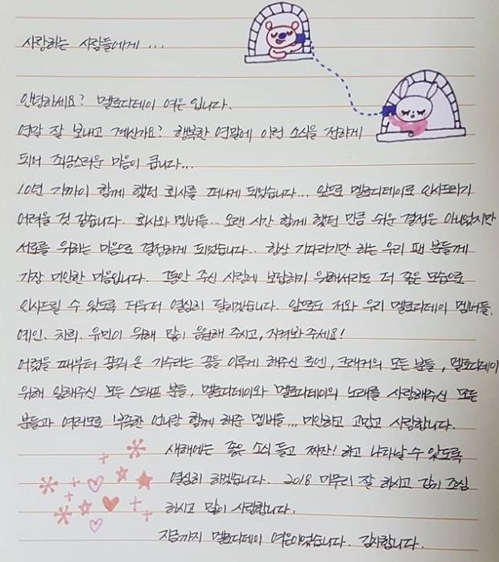 사랑하는 사람들에게 ...
안녕하세요? 멜로디데이 여은 입니다.
연말 잘 보내고 계신가요? 행복한 연말에 이런 소식을 전하게
되어 죄송스러운 마음이 큽니다...
10년 가까이 함께 했던 회사를 떠나게 되었습니다... 앞으로 멜로디데이로 인사드리기
어려울 것 같습니다. 회사와 멤버들... 오랜 시간 함께 했던 만큼 쉬운 결정은 아니었지만
서로를 위하는 마음으로 결정하게 되었습니다.. 항상 기다리기만 하는 우리 팬 분들께
가장 미안한 마음입니다. 그동안 주신 사랑에 보답하기 위해서라도 더 좋은 모습으로
인사드릴 수 있도록 더욱더 열심히 달리겠습니다. 앞으로도 저와 우리 멜로디데이 멤버들.
예인. 차희. 유민이 위해 많이 응원해 주시고, 지켜봐 주세요!
어렸을 때부터 꿈꿔 온 가수라는 꿈을 이루게 해주신 로엔, 크래커의 모든 분들, 멜로디데이
위해 일해주신 모든 스태프 분들, 멜로디데이와 멜로디데이의 노래를 사랑해주신 모든
분들과 여러모로 부족한 언니랑 함께 해준 멤버들... 미안하고 고맙고 사랑합니다.
새해에는 좋은 소식 들고 짜잔! 하고 나타날 수 있도록
열심히 하겠습니다. 2018 마무리 잘 하시고 감기 조심
하시고 많이 사랑합니다.
지금까지 멜로디데이 여은이었습니다. 감사합니다.